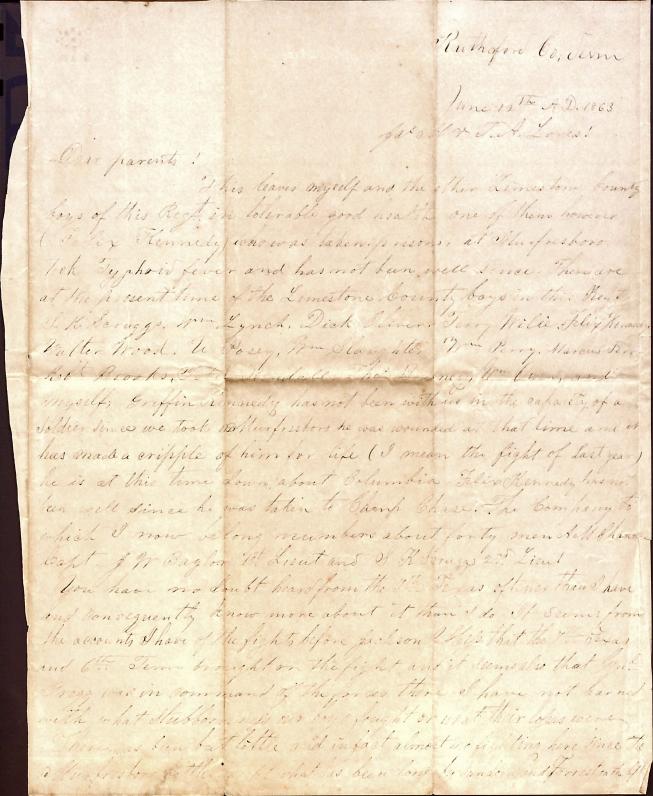 Rutherford Co, Tenn
June 12th A.D. 1863
T. A. Lones!
Dear parents!
This leaves myself and the other Limestone County
boys of this Regt in tolerable good health one of them however
(Felix Kennedy) who was taken prisoner at Murfresboro
Typhoid fever and has not been well since. There are
at the present time of the Limestone County boys in this Regt
S. K. Scruggs, Wm Lynch, Dick Terry Wilie Felix Kennedy
Walter Wood. Posey, Wm Wm Perry. Marcus
Brooks, Wm and
myself; Griffin Kennedy has not been with us in the capacity of a
soldier since we took Murfresboro he was wounded at that time and it
has made a cripple of him for life (I mean the fight of last year)
he is at this time down about Columbia Felix Kennedy has not
been well since he was taken to Camp Chase. The Company to
which I now belong numbers about forty men
Capt J W 1st Lieut and S K Scruggs 2nd Lieut
You have no doubt heard from the 7th Texas oftener than I have
and consequently know more about it than I do. It seems from
the accounts I have of the fights before Jackson Miss that the 7th Texas
and 6th Tenn brought on the fight and it seems also that Genl
was in command of the forces there I have not learned
with what stubbornness our boys fought or what their loss were
There has been but little and in fact almost no fighting here since the
Murfresboro what has been done by and Forrest